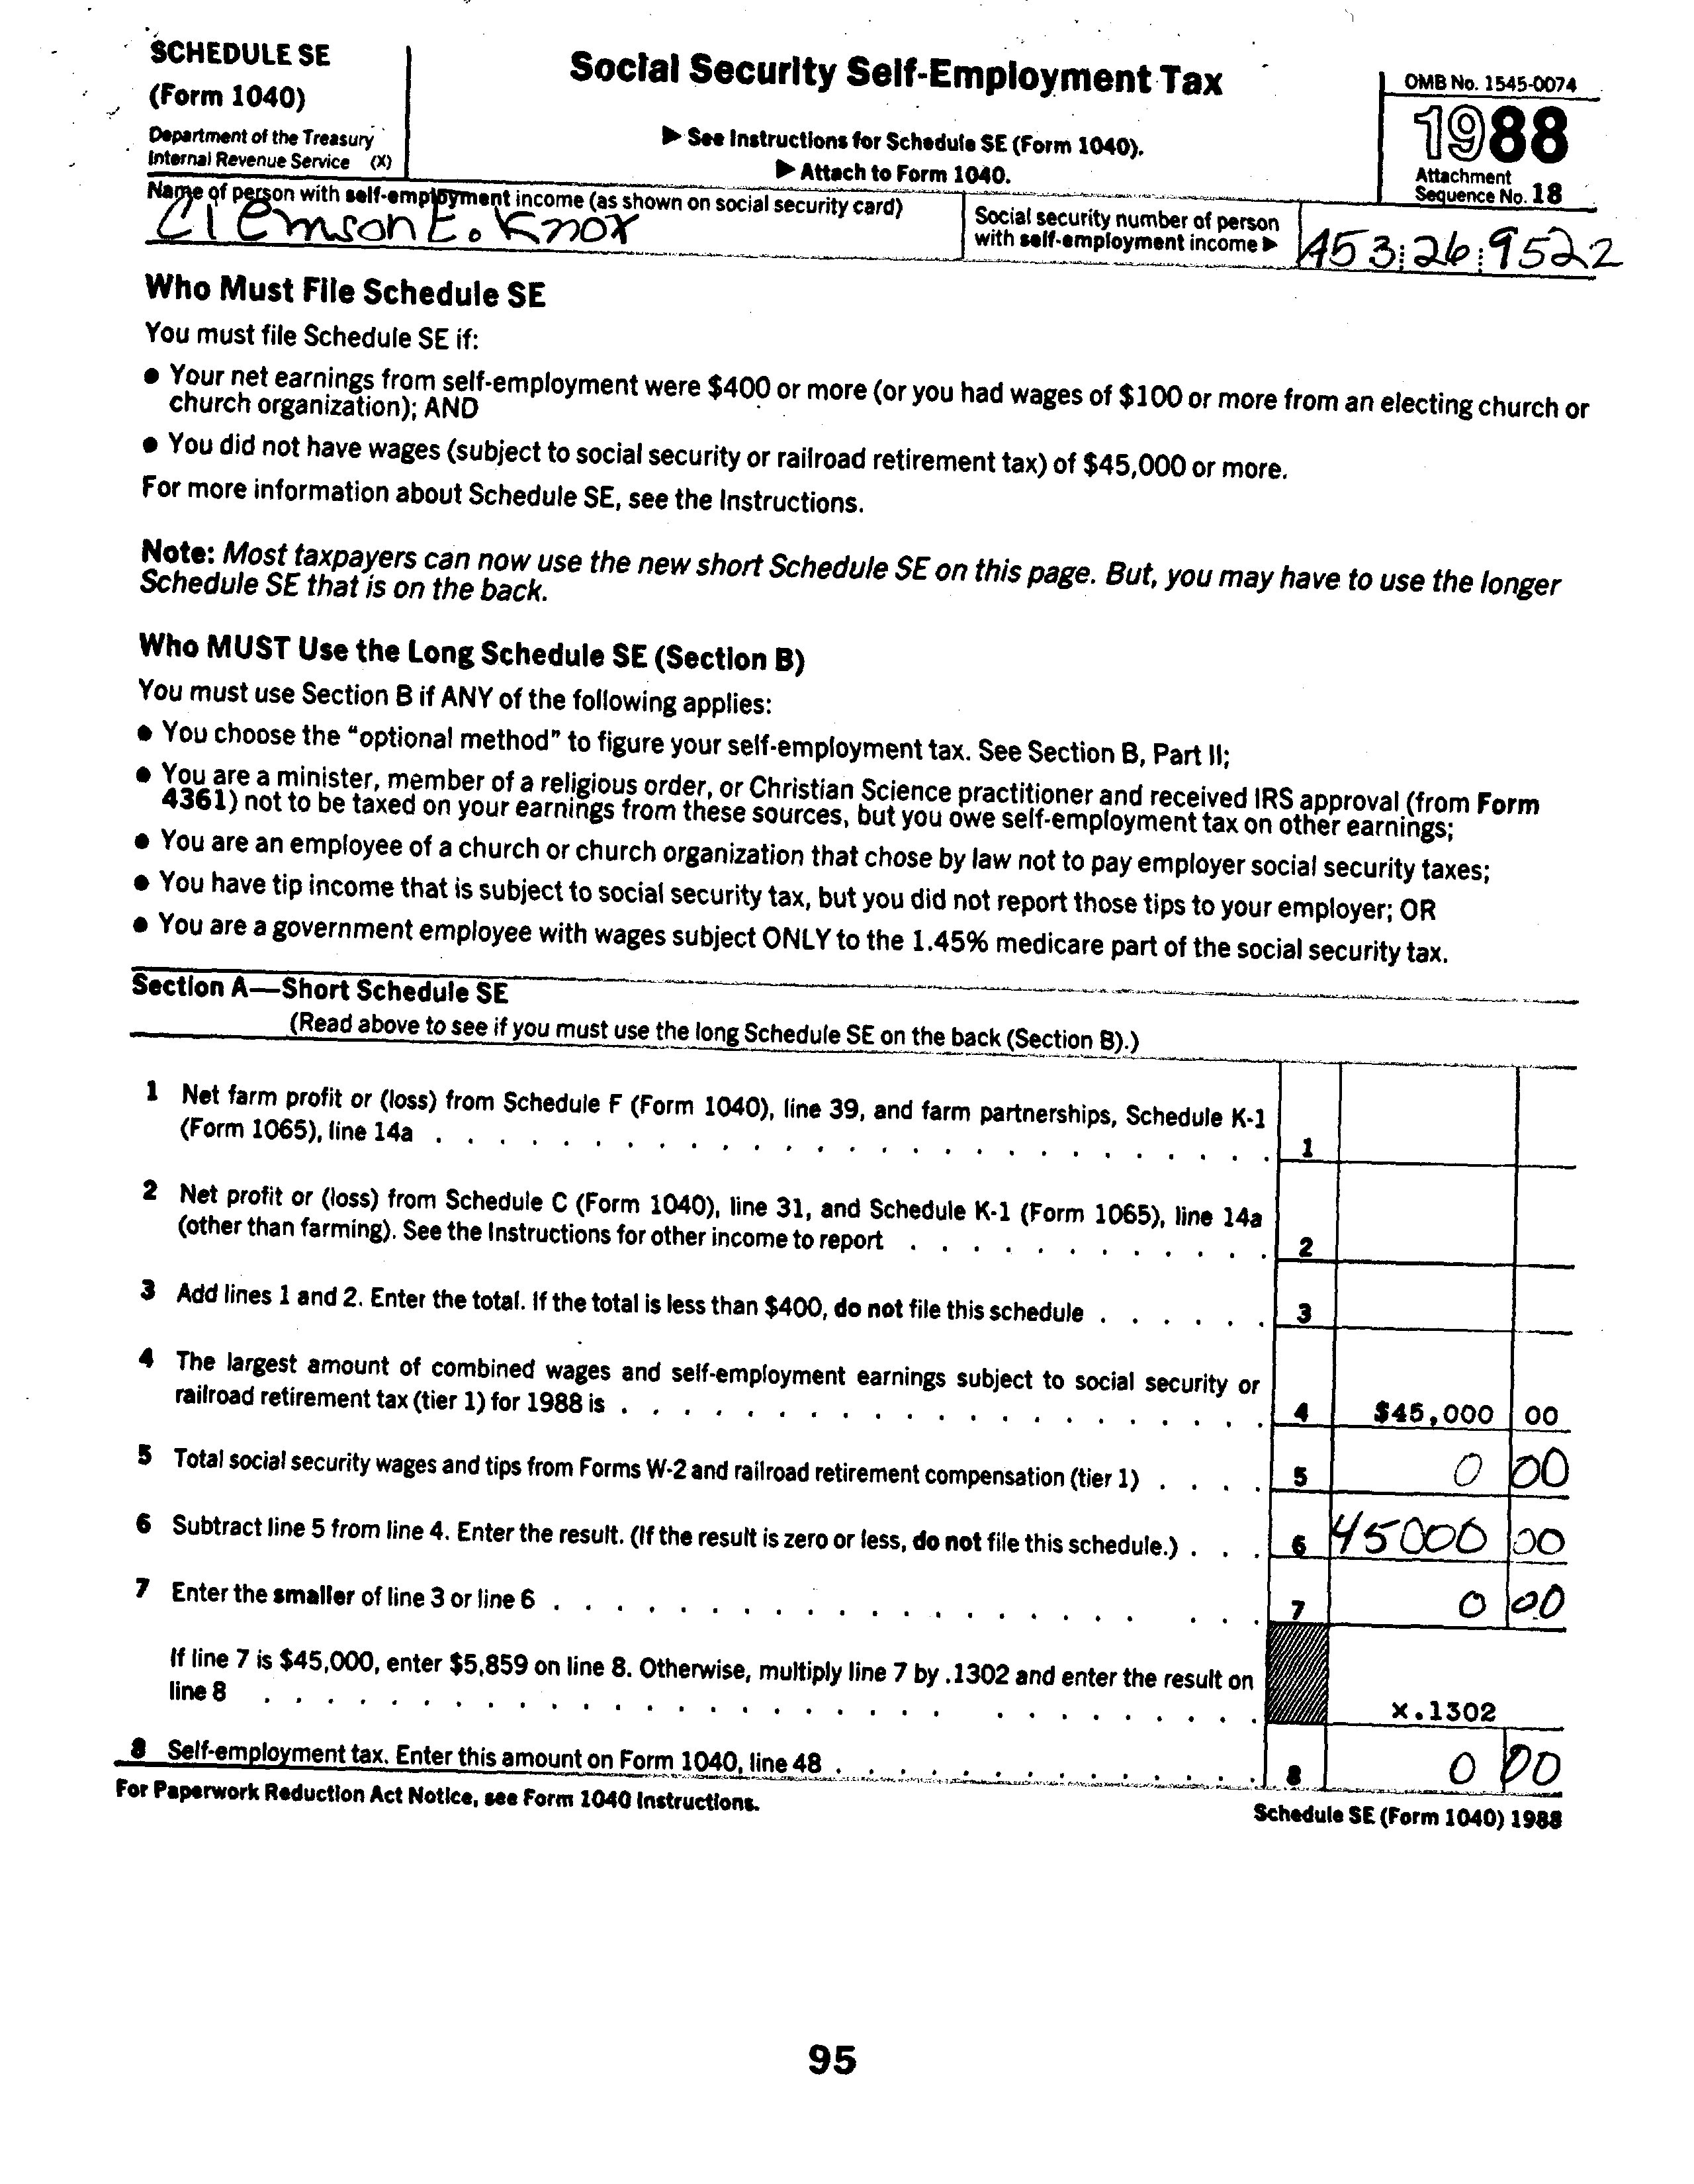 SCHEDULE SE
(Form 1040)
Department of the Treasury
Internal Revenue Service (X)
Social Security Self-Employment Tax
▶ See Instructions for Schedule SE (Form 1040).
▶ Attach to Form 1040.
OMB No. 1545-0074
1988
Attachment
Sequence No. 18
Name of person with self-employment income (as shown on social security card)
Clemson E. Knox
Social security number of person
with self-employment income ▶
453 26 9522
Who Must File Schedule SE
You must file Schedule SE if:
● Your net earnings from self-employment were $400 or more (or you had wages of $100 or more from an electing church or
church organization); AND
● You did not have wages (subject to social security or railroad retirement tax) of $45,000 or more.
For more information about Schedule SE, see the Instructions.
Note: Most taxpayers can now use the new short Schedule SE on this page. But, you may have to use the longer
Schedule SE that is on the back.
Who MUST Use the Long Schedule SE (Section B)
You must use Section B if ANY of the following applies:
● You choose the "optional method" to figure your self-employment tax. See Section B, Part II;
● You are a minister, member of a religious order, or Christian Science practitioner and received IRS approval (from Form
4361) not to be taxed on your earnings from these sources, but you owe self-employment tax on other earnings;
● You are an employee of a church or church organization that chose by law not to pay employer social security taxes;
● You have tip income that is subject to social security tax, but you did not report those tips to your employer; OR
● You are a government employee with wages subject ONLY to the 1.45% medicare part of the social security tax.
Section A—Short Schedule SE
(Read above to see if you must use the long Schedule SE on the back (Section B).)
1 Net farm profit or (loss) from Schedule F (Form 1040), line 39, and farm partnerships, Schedule K-1
(Form 1065), line 14a . . . . . . . . . . . . . . . . . . . . . . . . . . 1
2 Net profit or (loss) from Schedule C (Form 1040), line 31, and Schedule K-1 (Form 1065), line 14a
(other than farming). See the Instructions for other income to report . . . . . . . . . . . . 2
3 Add lines 1 and 2. Enter the total. If the total is less than $400, do not file this schedule . . . . . . 3
4 The largest amount of combined wages and self-employment earnings subject to social security or
railroad retirement tax (tier 1) for 1988 is . . . . . . . . . . . . . . . . . . . . 4 $45,000 00
5 Total social security wages and tips from Forms W-2 and railroad retirement compensation (tier 1) . . . . 5 0 00
6 Subtract line 5 from line 4. Enter the result. (If the result is zero or less, do not file this schedule.) . . . 6 45000 00
7 Enter the smaller of line 3 or line 6 . . . . . . . . . . . . . . . . . . . . . . 7 0 00
If line 7 is $45,000, enter $5,859 on line 8. Otherwise, multiply line 7 by .1302 and enter the result on
line 8 . . . . . . . . . . . . . . . . . . . . . . . . . . . . . . . x.1302
8 Self-employment tax. Enter this amount on Form 1040, line 48 . . . . . . . . . . . . . . 8 0 00
For Paperwork Reduction Act Notice, see Form 1040 Instructions.
Schedule SE (Form 1040) 1988
95